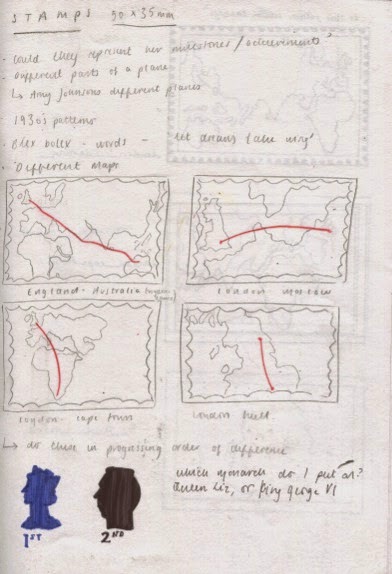 STAMPS 50 x 35mm
- Could they represent her milestones / achievements?
- Different parts of a plane
↳ Amy Johnsons different planes
1930's patterns
- words -
- Different Maps
England - Australia
London Moscow
London - Cape Town
London Hull
↳ do these in progressing order of difference
which monarch do I put on?
Queen Liz, or King George VI
1ST
2ND